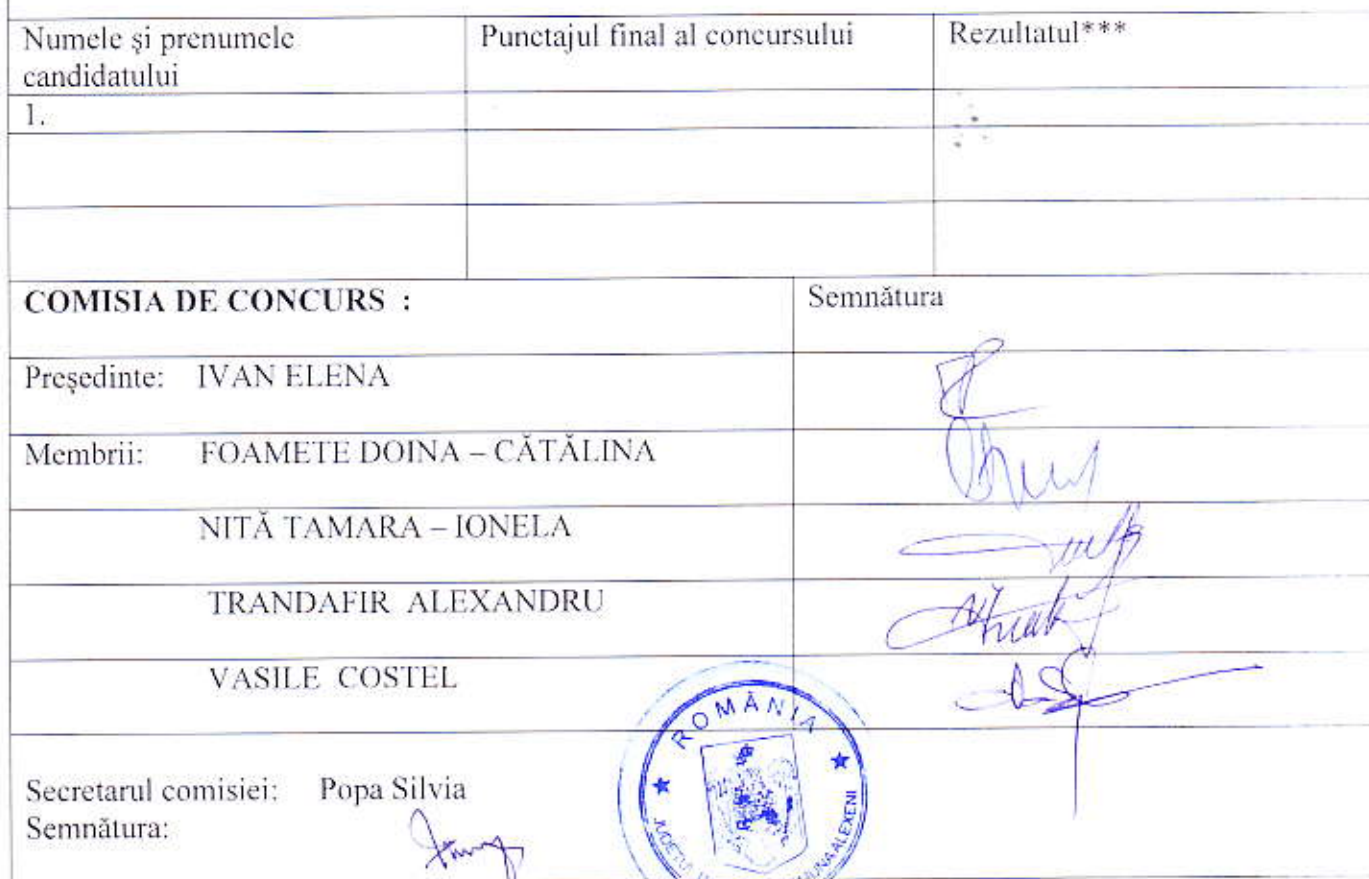 Numele și prenumele candidatului
Punctajul final al concursului
Rezultatul***
1.
COMISIA DE CONCURS :
Semnătura
Președinte: IVAN ELENA
Membrii: FOAMETE DOINA – CĂTĂLINA
NITĂ TAMARA – IONELA
TRANDAFIR ALEXANDRU
VASILE COSTEL
Secretarul comisiei: Popa Silvia
Semnătura:
ROMÂNIA
ALEXENI